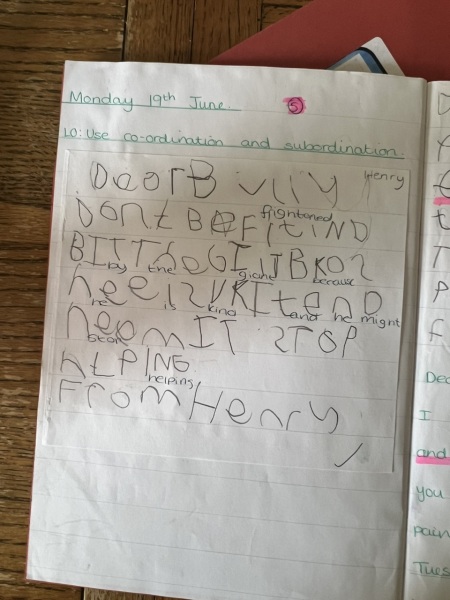 Monday 19th June. 5
LO: Use co-ordination and subordination.
Henry
DearB illy
Dont BE FItIND
frightened
BITTheGIIJBKOS
by the giant because
heeISVKItenD
he is kind and he might
heemIT STOP
hLPING
helping
From Henry
Dec
I
and
you
pain
Tues